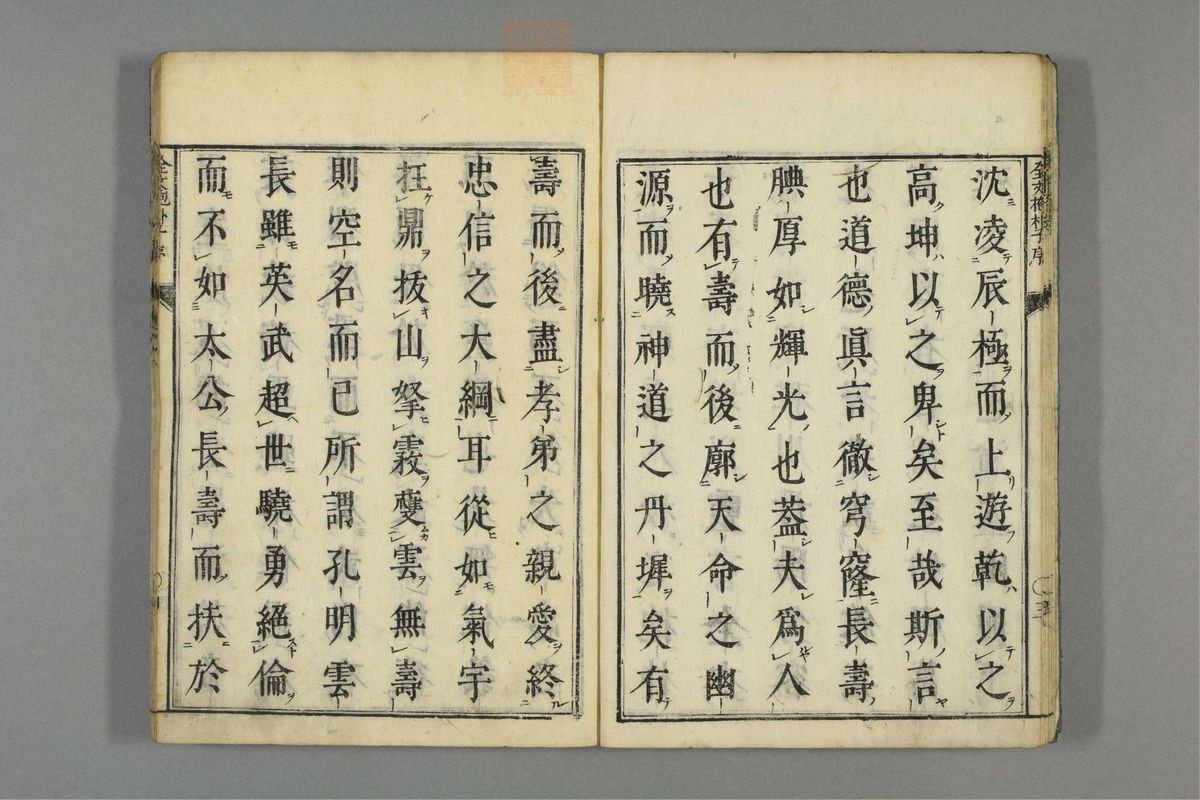 沈凌辰極而上遊乾以之
高坤以之卑矣至哉斯言
也道德眞言徹穹窿長壽
腆厚如輝光也葢夫爲人
也有壽而後廓天命之幽
源而曉神道之丹墀矣有
壽而後盡孝弟之親愛終
忠信之大綱耳從如氣宇
扛鼎拔山拏雲無壽
則空名而已所謂孔明雲
長雖英武超世驍勇絕倫
而不如太公長壽而扶於